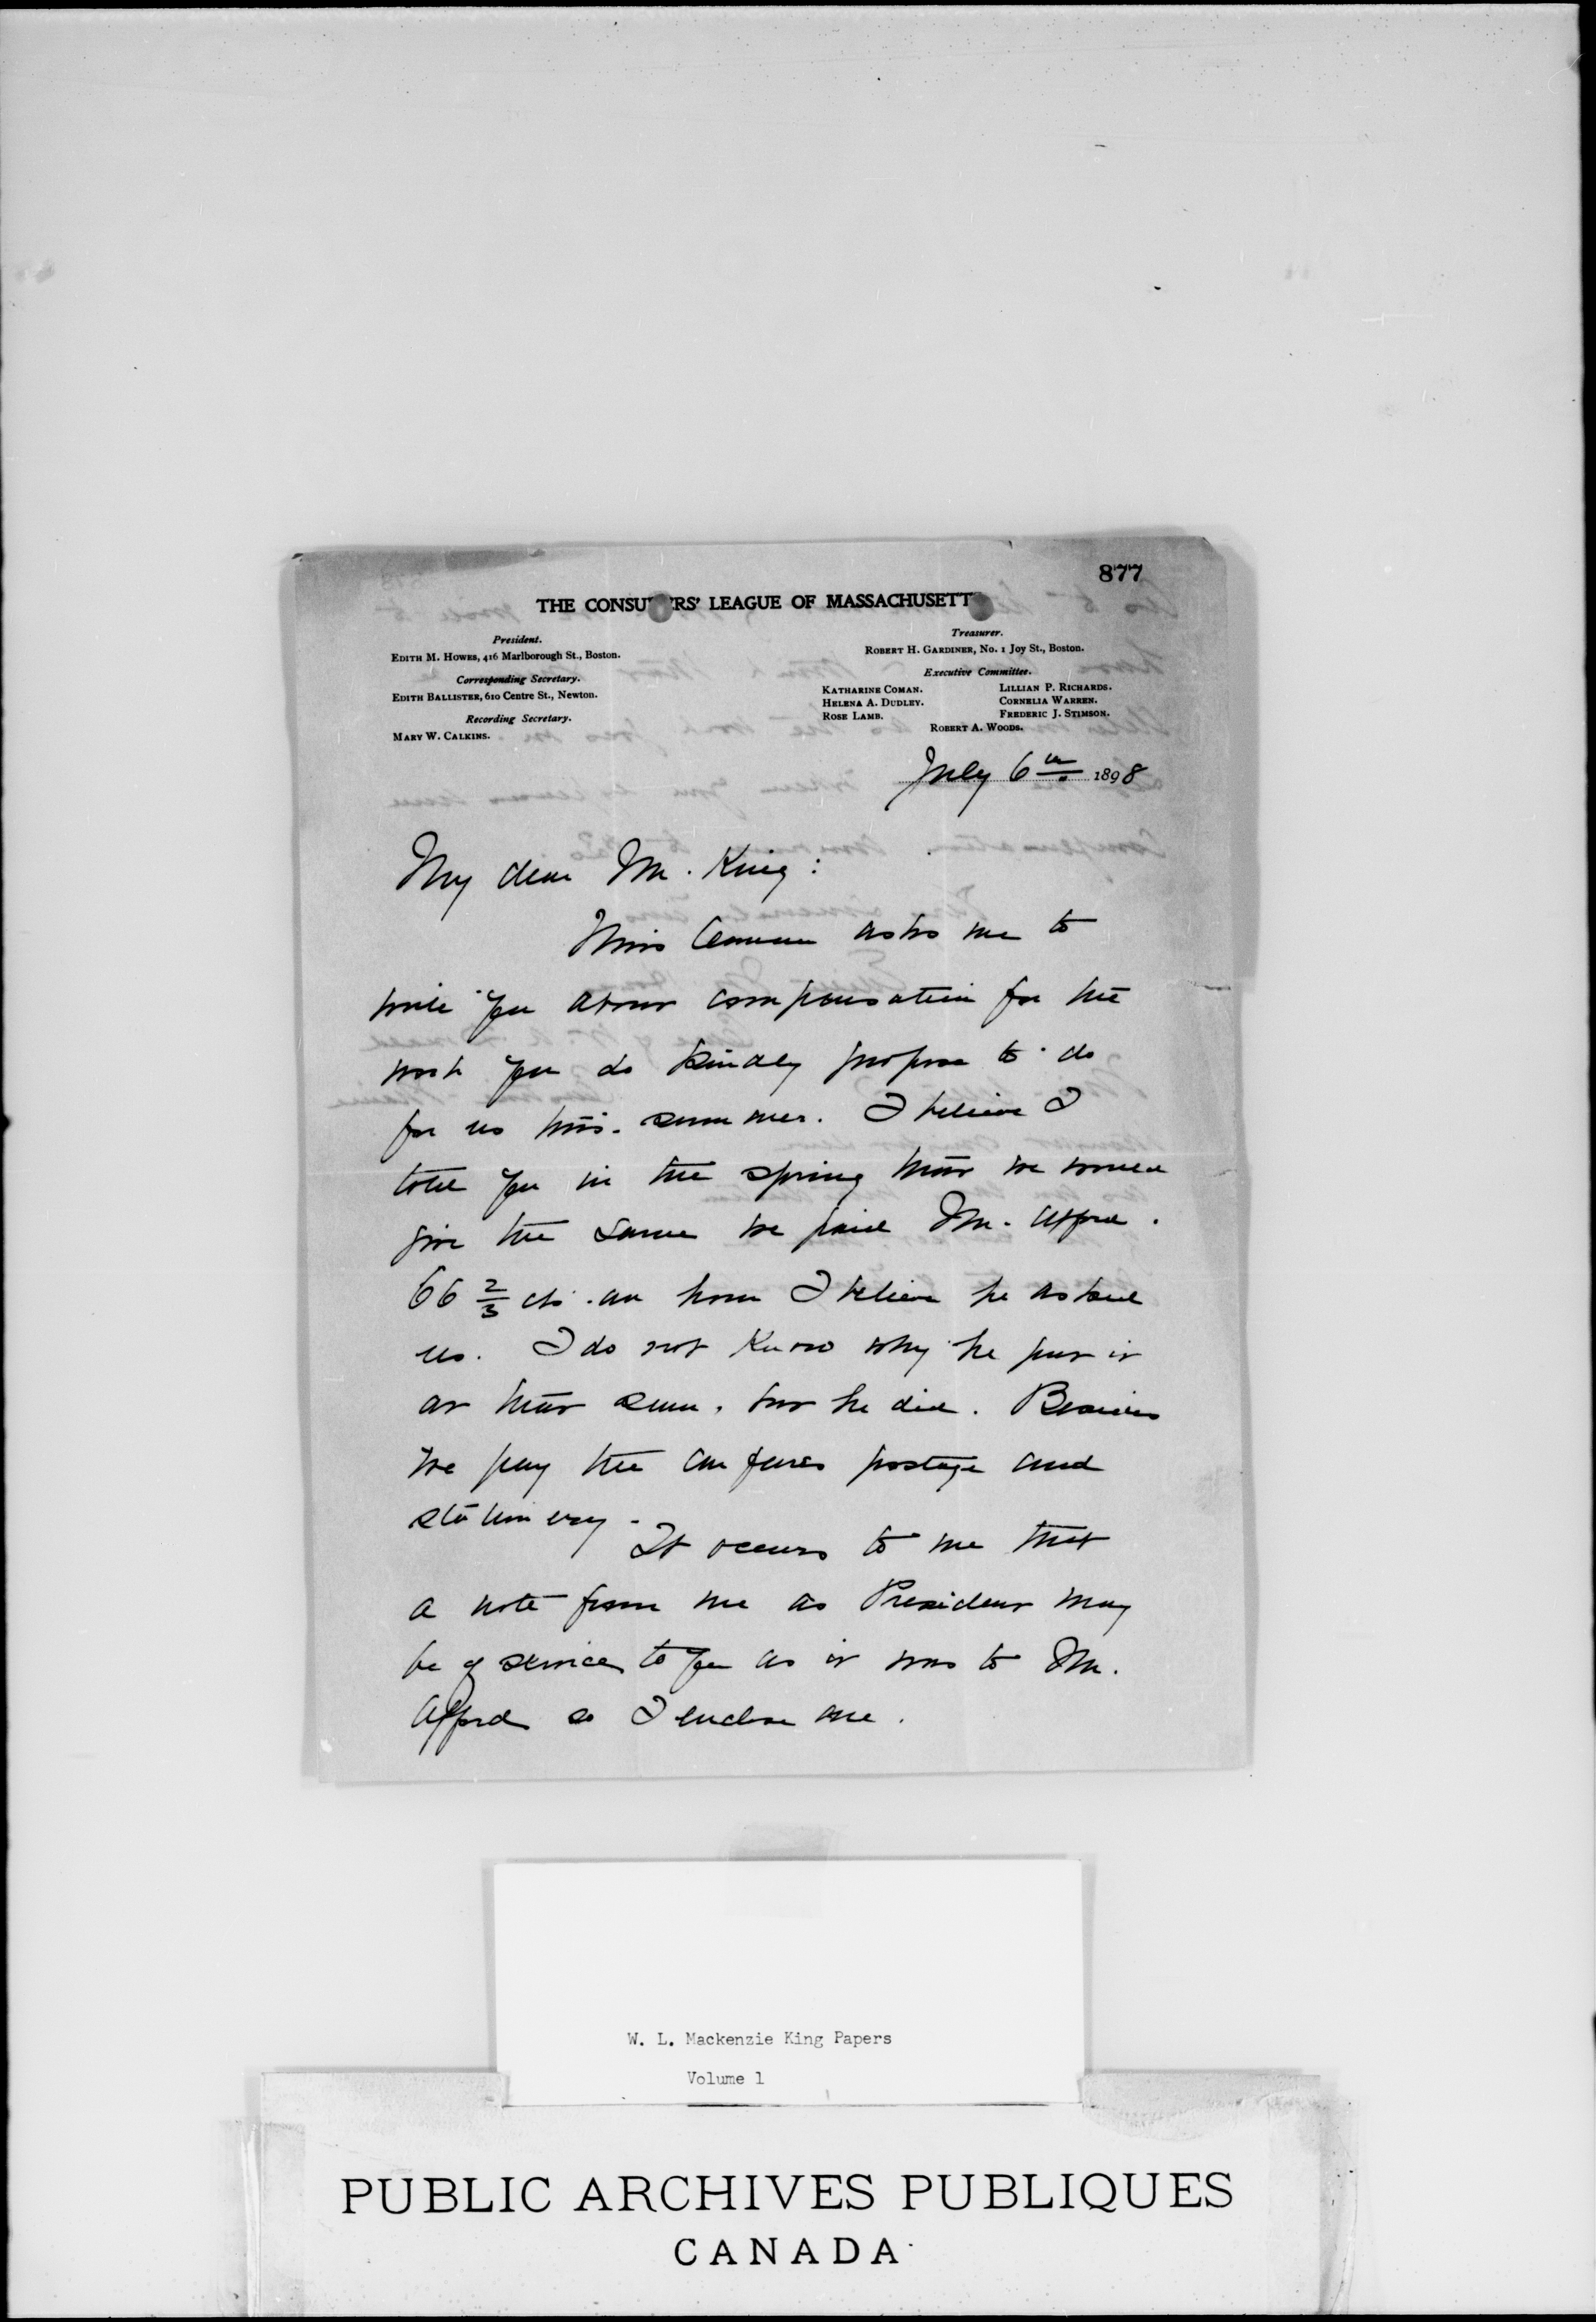 877
THE CONSU RS' LEAGUE OF MASSACHUSETT
President.
EDITH M. HOWES, 416 Marlborough St., Boston.
Corresponding Secretary.
EDITH BALLISTER, 610 Centre St., Newton.
Recording Secretary.
MARY W. CALKINS.
Treasurer.
ROBERT H. GARDINER, No. 1 Joy St., Boston.
Executive Committee.
KATHARINE COMAN. LILLIAN P. RICHARDS.
HELENA A. DUDLEY. CORNELIA WARREN.
ROSE LAMB. FREDERIC J. STIMSON.
ROBERT A. WOODS.
July 6th 1898
My dear Mr. King:
Miss Coman asks me to
write you about compensation for the
work you so kindly propose to do
for us this summer. I believe I
told you in the spring that we would
give the same we paid Mr.
66 2/3 cts. an hour I believe he asked
us. I do not know why he put it
at that sum, but he did. Besides
we pay the car fares postage and
stationery.
It occurs to me that
a note from me as President may
be of service to you as it was to Mr.
so I enclose one.
W. L. Mackenzie King Papers
Volume 1
PUBLIC ARCHIVES PUBLIQUES
CANADA